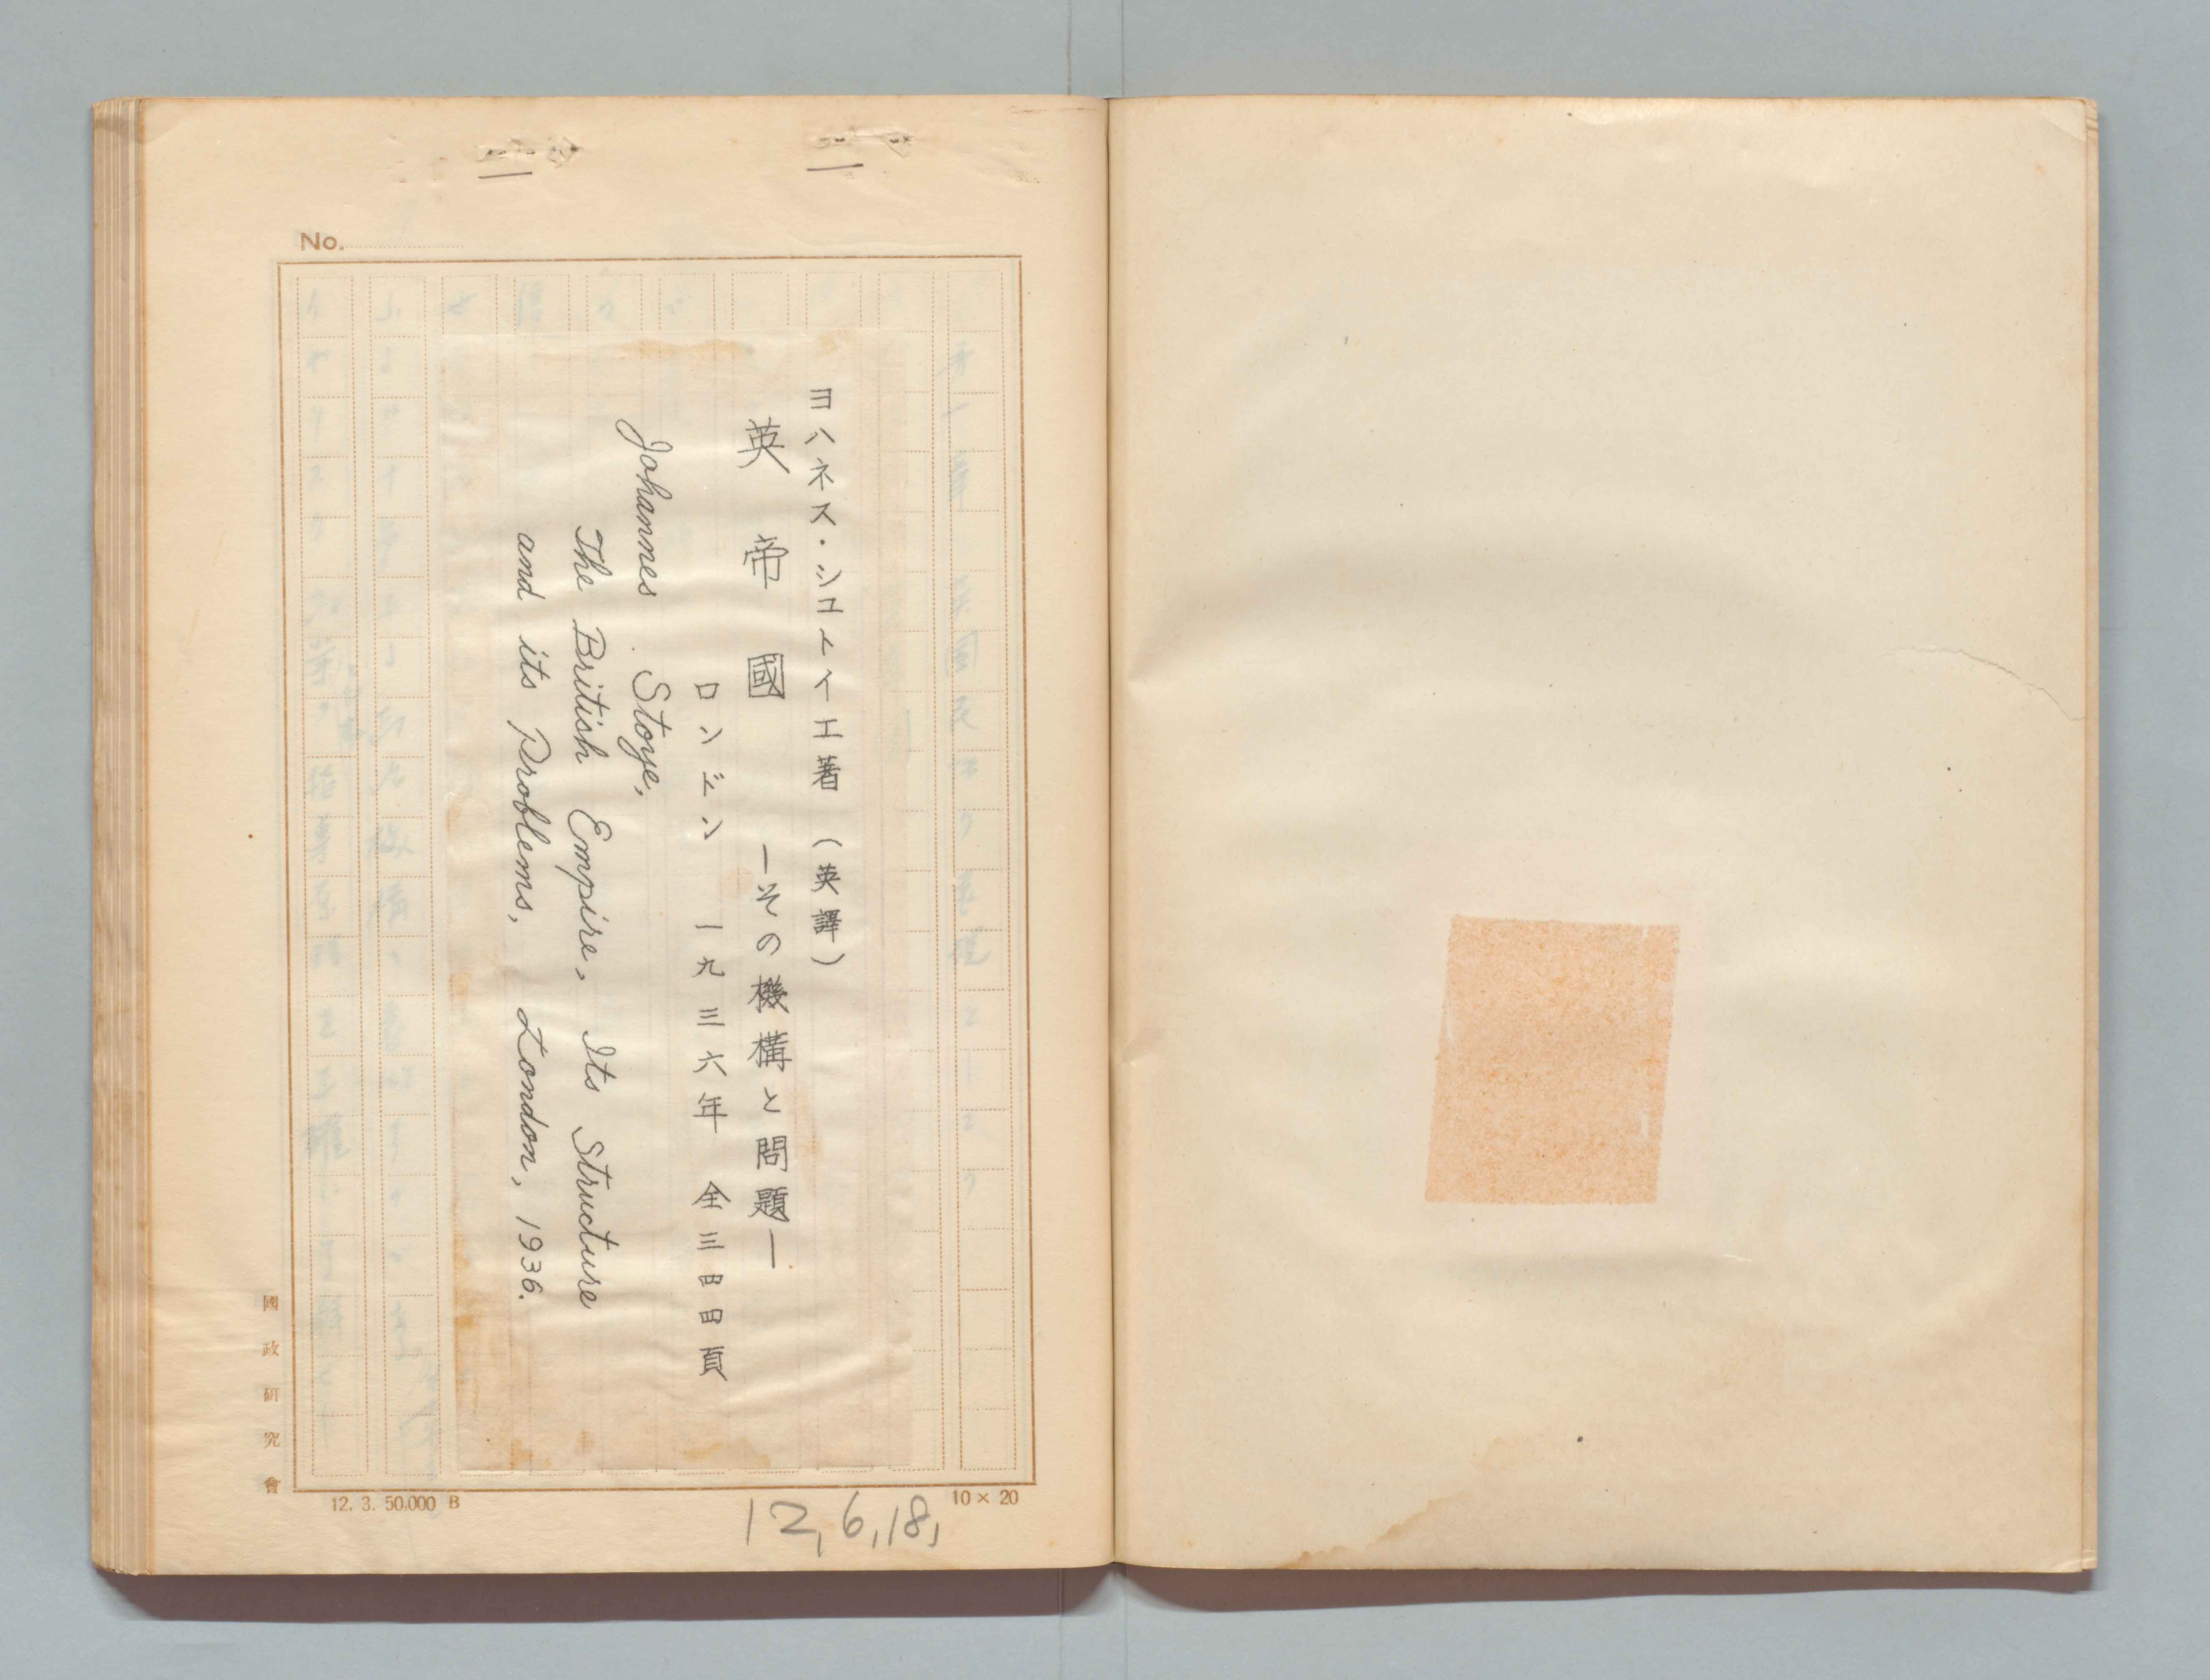 No.
ヨハネス・シュトイエ著（英譯）
英帝國　―その機構と問題―
ロンドン　一九三六年　全三四四頁
Johannes Stoye,
The British Empire, Its Structure
and its Problems, London, 1936.
國政研究會
12. 3. 50,000 B
10 × 20
12, 6, 18,